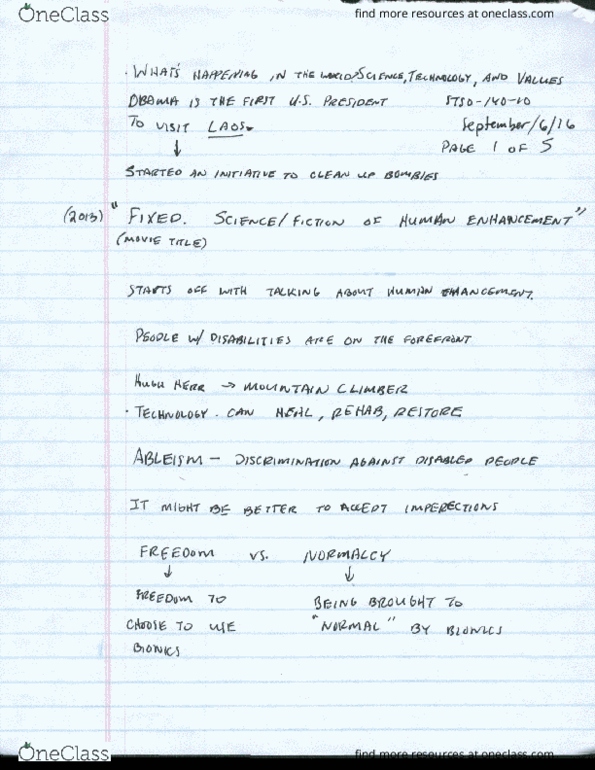 OneClass find more resources at oneclass.com
· WHAT'S HAPPENING IN THE WORLD/SCIENCE, TECHNOLOGY, AND VALUES
OBAMA IS THE FIRST U.S. PRESIDENT STSO-140-10
TO VISIT LAOS. September/6/16
PAGE 1 OF 5
STARTED AN INITIATIVE TO CLEAN UP BOMBIES
(2013) "FIXED. SCIENCE/FICTION OF HUMAN ENHANCEMENT"
(MOVIE TITLE)
STARTS OFF WITH TALKING ABOUT HUMAN ENHANCEMENT.
PEOPLE W/ DISABILITIES ARE ON THE FOREFRONT
HUGH HERR → MOUNTAIN CLIMBER
· TECHNOLOGY. CAN HEAL, REHAB, RESTORE
ABLEISM — DISCRIMINATION AGAINST DISABLED PEOPLE
IT MIGHT BE BETTER TO ACCEPT IMPERECTIONS
FREEDOM VS. NORMALCY
FREEDOM TO BEING BROUGHT TO
CHOOSE TO USE "NORMAL" BY BIONICS
BIONICS
OneClass find more resources at oneclass.com